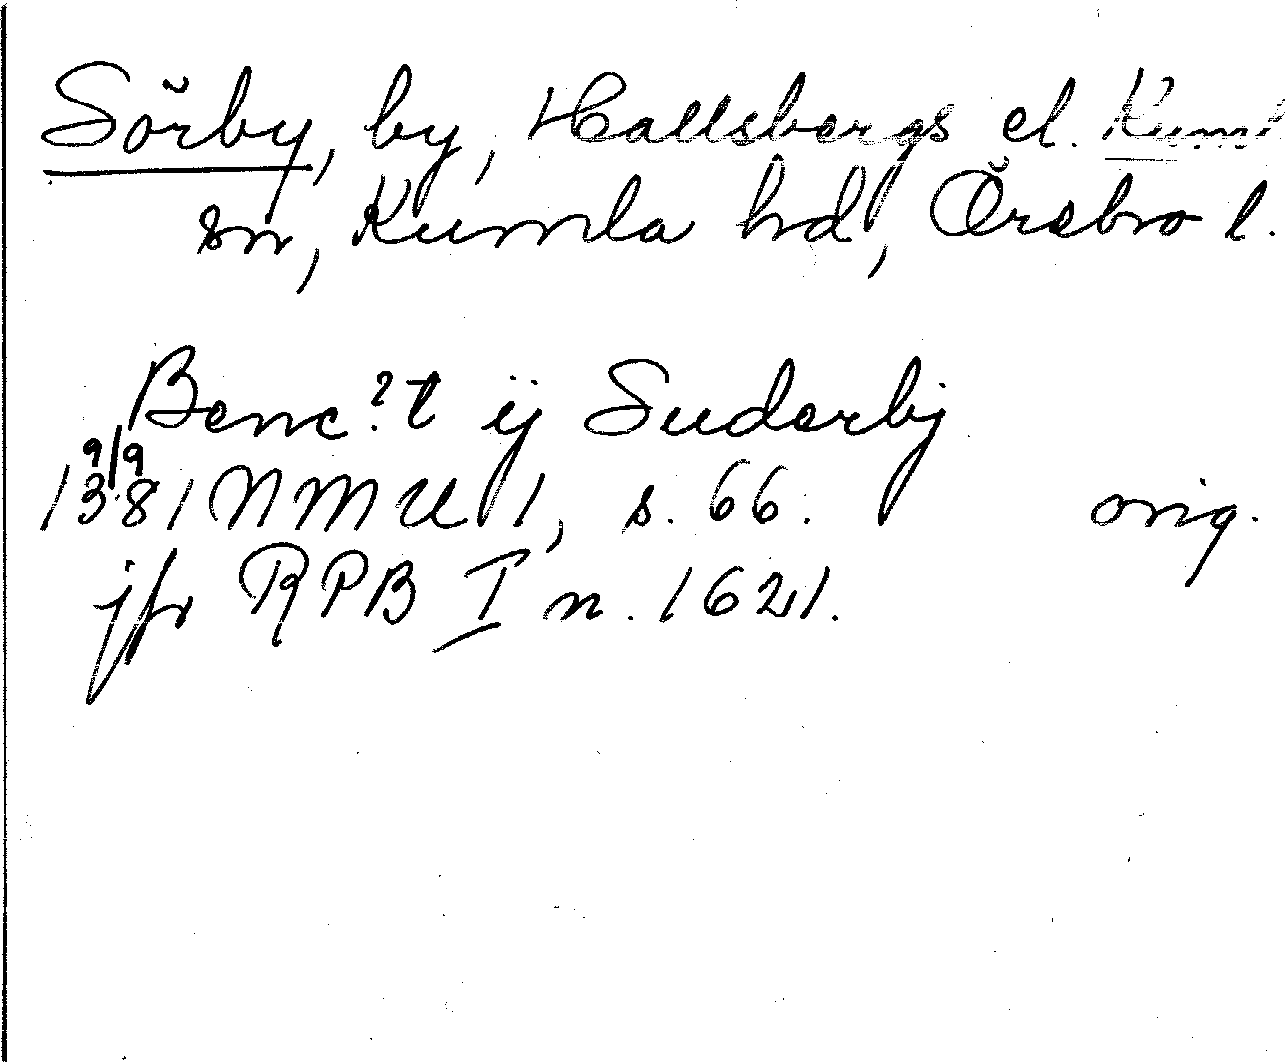 Sörby, by, Hallsbergs el. Kuml
sn, Kumla hd, Örebro l.
Benc?t ij Suderbij
9/9
1381 NMU 1, s. 66. orig.
jfr RPB I n. 1621.